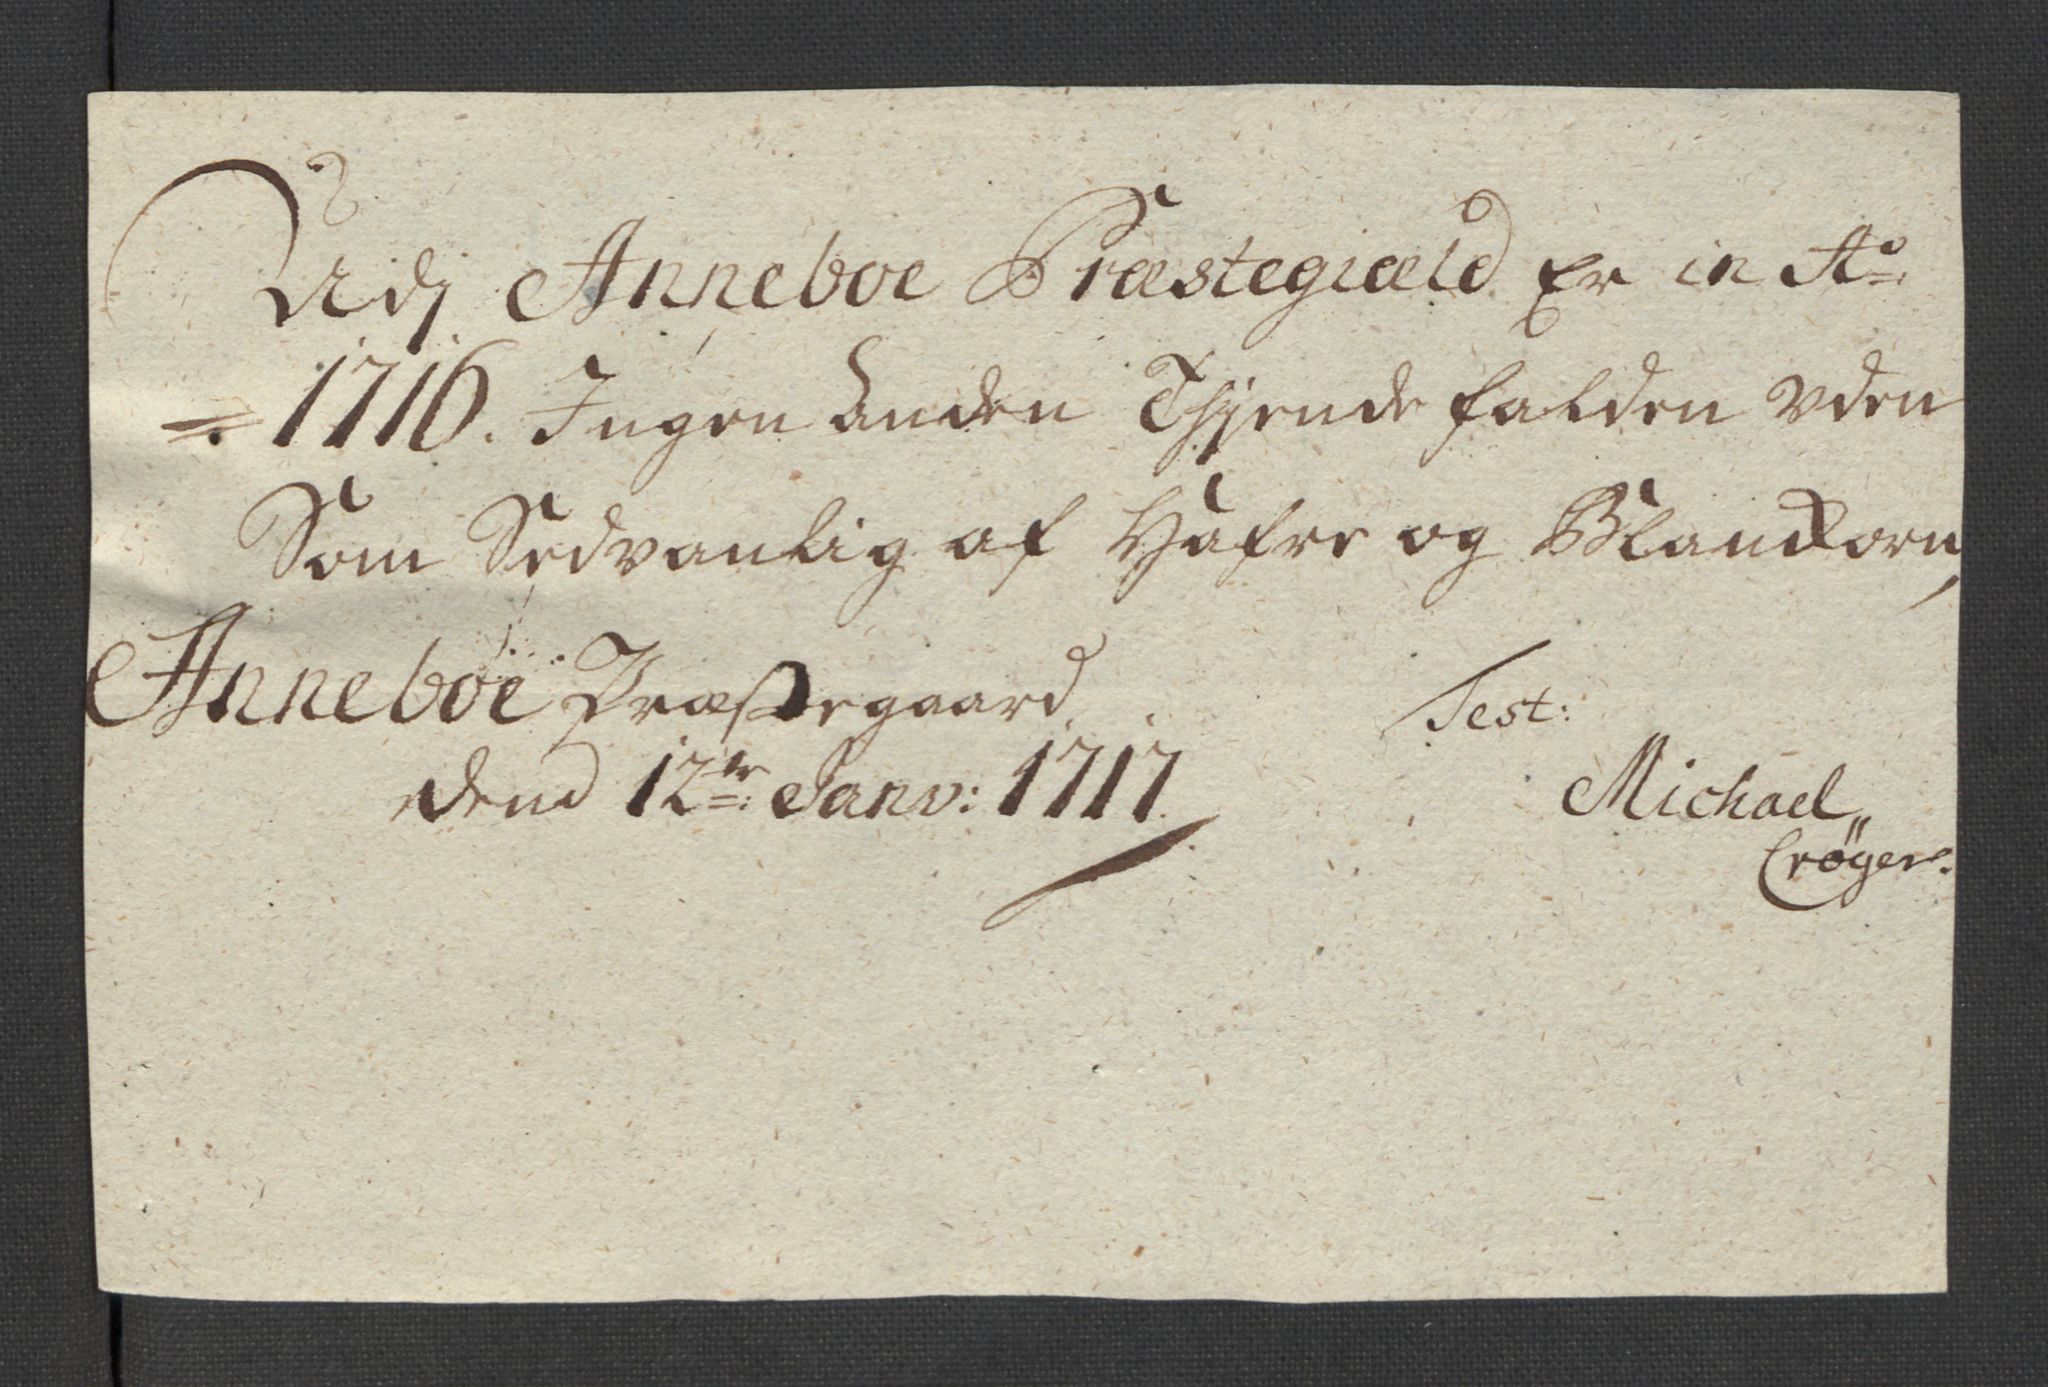 Udj Anneboe Præstegiæld Er in Ao:
1716. Ingen Anden Thjende falden Vden
Som Sedvanlig af Hafre og Blandkorn,
Anneboe Præstegaard Test:
dend 12te: Janv: 1717.
Michael
Crøger.